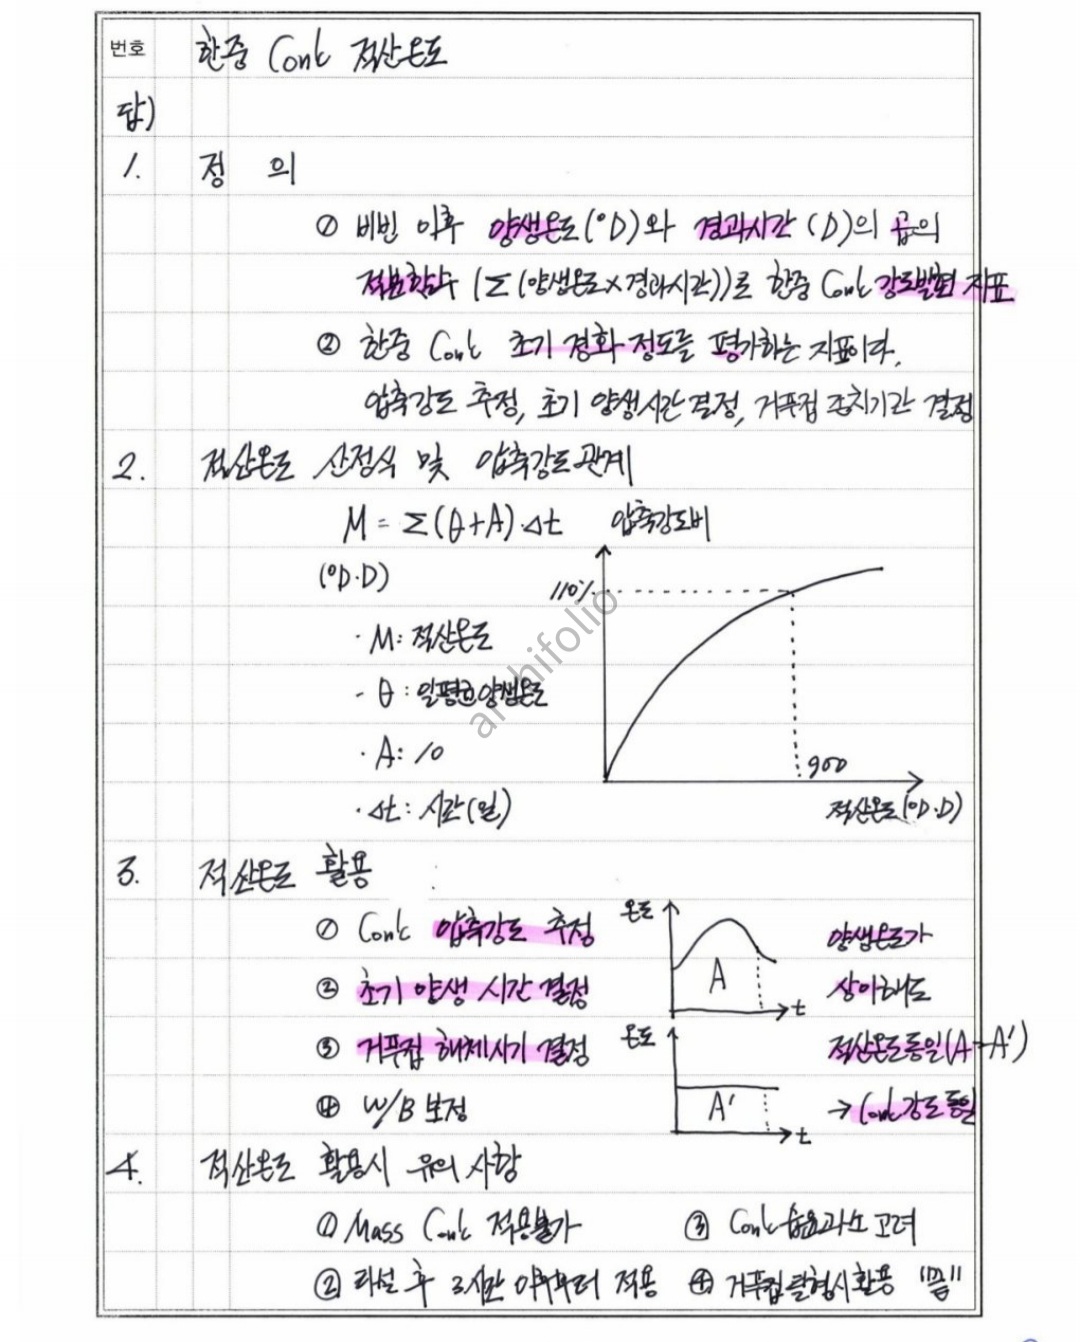 번호 한중 Conc 적산온도
답)
1. 정 의
① 비빔 이후 양생온도(°D)와 경과시간 (D)의 곱의
적분함수 (Σ(양생온도×경과시간))로 한중 Conc 강도발현 지표
② 한중 Conc 초기 경화 정도를 평가하는 지표이다.
압축강도 추정, 초기 양생시간 결정, 거푸집 존치기간 결정
2. 적산온도 산정식 및 압축강도 관계
M = Σ(θ+A)·Δt 압축강도비
(°D·D)
110%
· M: 적산온도
- θ : 일평균양생온도
· A: 10
900
· Δt : 시간(일)
적산온도(°D·D)
3. 적산온도 활용
① Conc 압축강도 추정
② 초기 양생 시간 결정
③ 거푸집 해체시기 결정
④ W/B 보정
온도 A t
온도 A' t
양생온도가
상이해도
적산온도동일(A=A')
→ Conc강도 동일
4. 적산온도 활용시 유의 사항
① Mass Conc 적용불가 ③ Conc 고려
② 타설 후 3시간 이후부터 적용 ④ 거푸집탈형시 활용 "끝"
archifolio